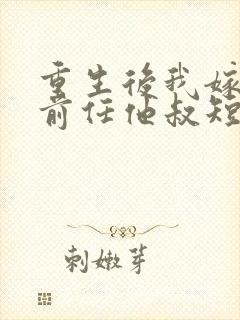 重生後我嫁
前任他叔短
刺嫩芽